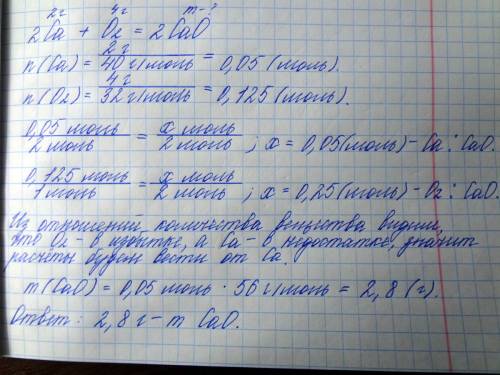 2г 4г m-?
2Ca + O₂ = 2CaO
n(Ca) = 2г / 40 г/моль = 0,05 (моль).
n(O₂) = 4г / 32 г/моль = 0,125 (моль).
0,05 моль / 2 моль = x моль / 2 моль ; x = 0,05 (моль) - Ca : CaO.
0,125 моль / 1 моль = x моль / 2 моль ; x = 0,25 (моль) - O₂ : CaO.
Из отношений количества вещества видим,
что O₂ - в избытке, а Ca - в недостатке, значит
расчёты будем вести от Ca.
m(CaO) = 0,05 моль · 56 г/моль = 2,8 (г).
Ответ: 2,8 г - m CaO.